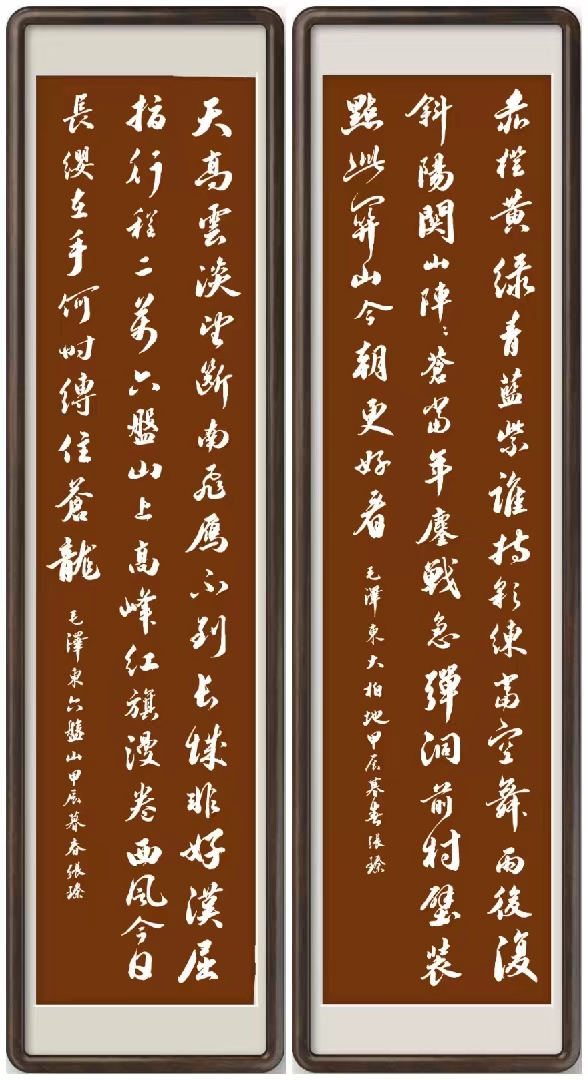 赤橙黄綠青藍紫誰持彩練當空舞雨後復
斜陽関山陣〻蒼當年鏖戰急彈洞前村壁装
點此關山今朝更好看 毛澤東大柏地甲辰暮春張臻
天高雲淡望斷南飛鴈不到長城非好漢屈
指行程二萬六盤山上高峰紅旗漫卷西風今日
長纓在手何時縛住蒼龍 毛澤東六盤山甲辰暮春張臻